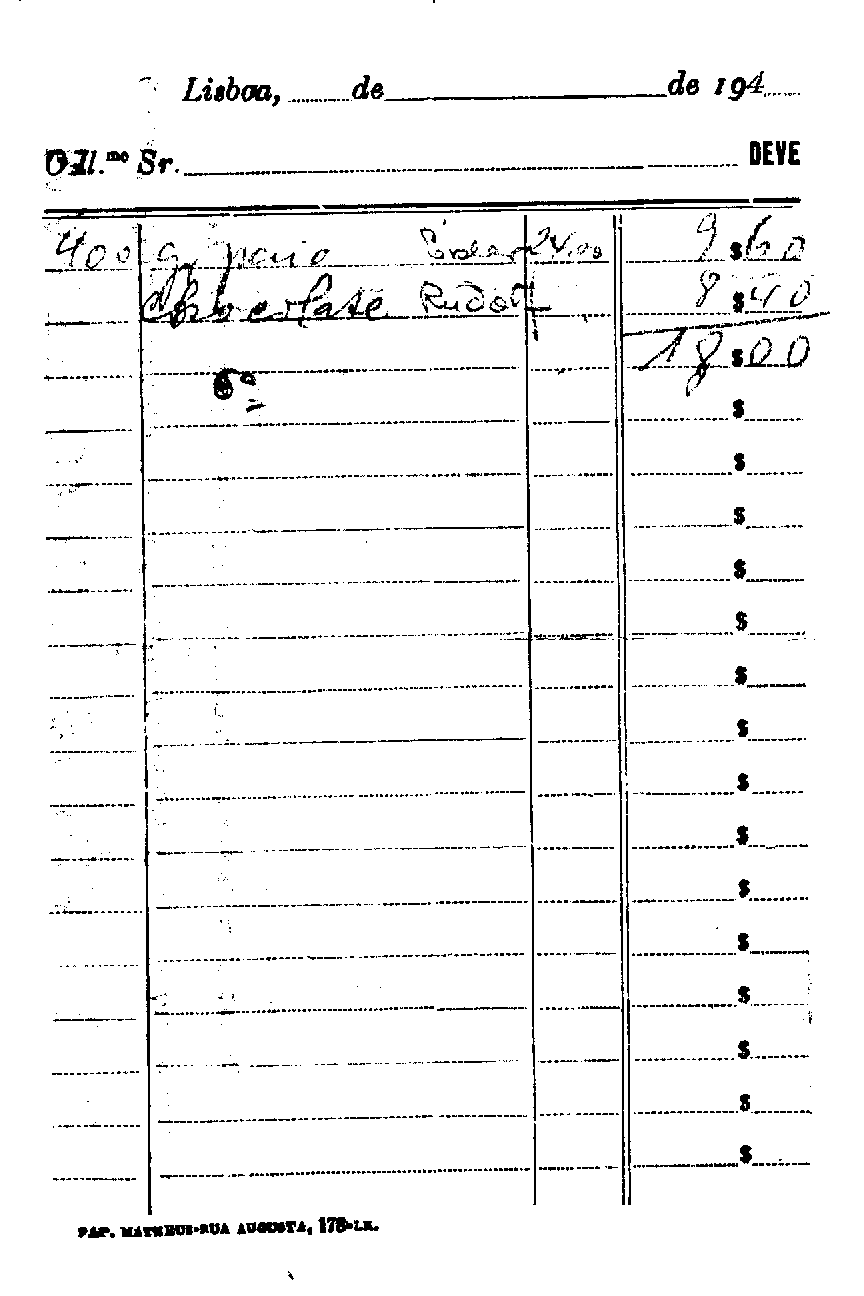 Lisboa, de de 194
O Il.mo Sr. DEVE
400 g. paio 24,00 9$60
chocolate 8$40
18$00
$
$
$
$
$
$
$
$
$
$
$
$
$
$
$
PAP. MATHEUS-RUA AUGUSTA, 175-LX.